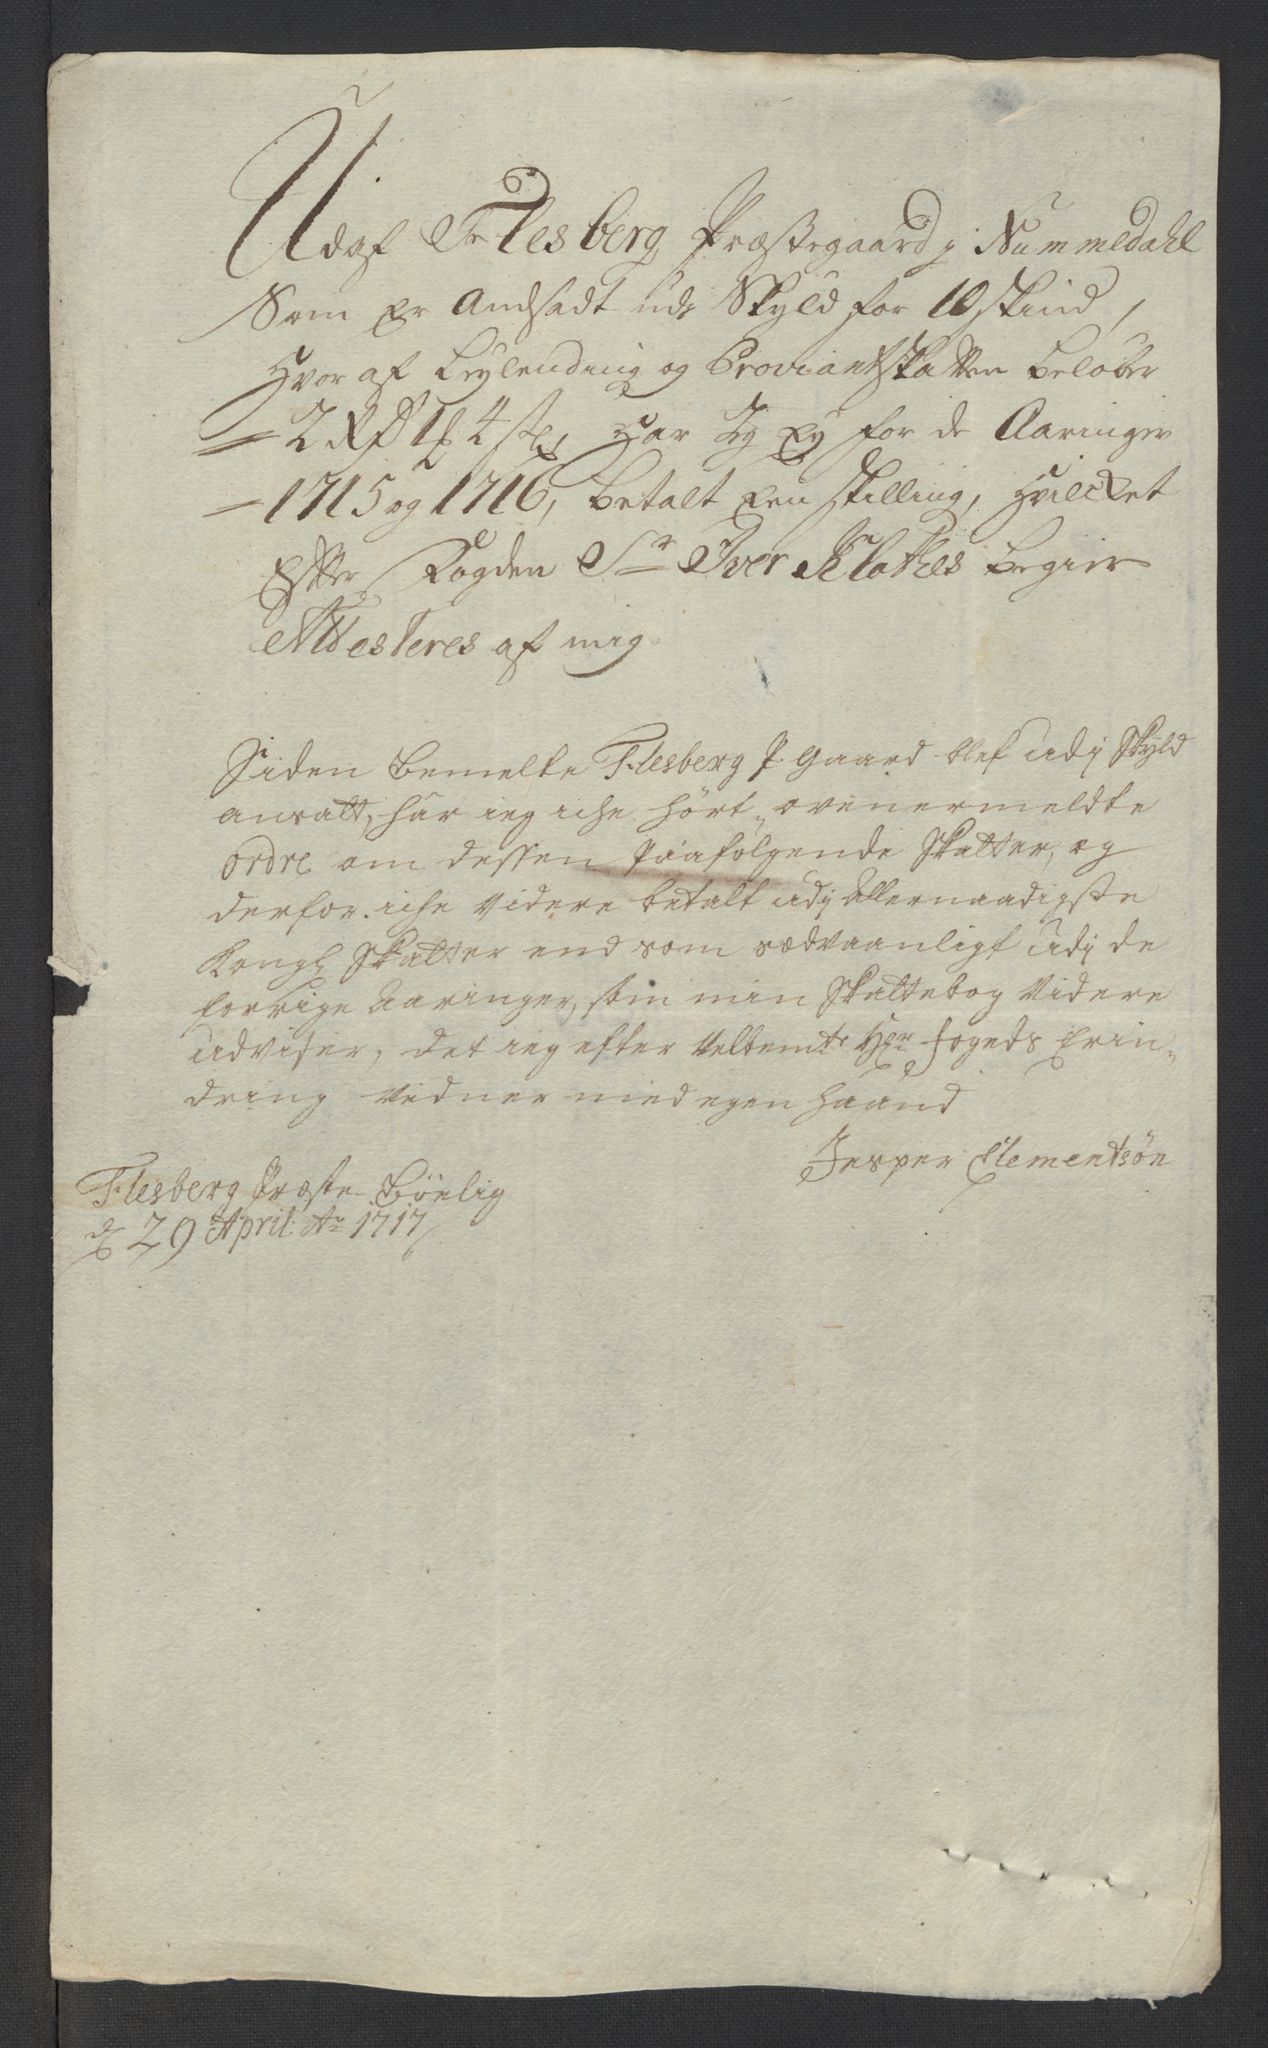 Udaf Flesberg Præstegaard j Nummedahl
Som Er Andsadt udj Skyld for 10 skind,
Hvor af Leylending og Proviantskatten beløber
2 Rd 1 4 s, Har Jeg Ey for de Aaringer
1715 og 1716, betalt Een skilling, Hvilcket
Efter Fogden Sr Iver Klothes begier
Attesteres af mig
Siden bemelte Flesberg P. Gaard blef udj Skyld
ansatt, har ieg iche hört ovenermeldte
ordre om dessen Paafølgende Skatter, og
derfor iche videre betalt udj Allernaadigste
Kongl Skatter end som sædvaanligt udj de
forrige Aaringer, som min Skattebog videre
udviser, det ieg efter Velbemte Hr fogeds Erin-
dring vidner med egen haand
Jesper Clementsøn
Flesberg Præste Böelig
d 29 April Ao 1717